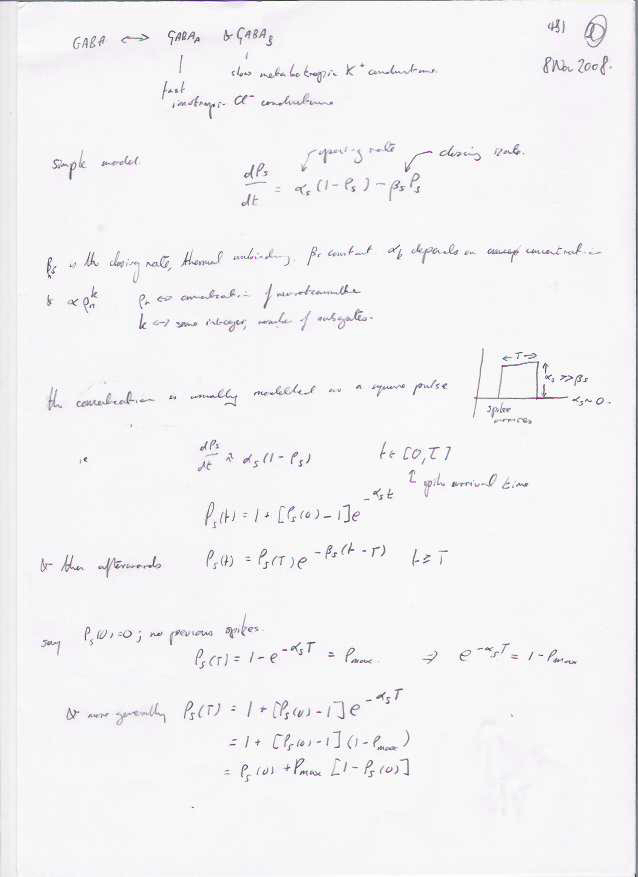 GABA ↔ GABA_A & GABA_B
491 ①
8 Nov 2008.
slow metabotropic K⁺ conductance.
fast
ionotropic Cl⁻ conductance
Simple model.
opening rate
closing rate.
dP_s/dt = α_s(1 − P_s) − β_s P_s
β_s is the closing rate, thermal unbinding. β_s constant α_s depends on concentration
& ∝ ρ_n^k ρ_n ↔ concentration of neurotransmitter
k ↔ some integer, number of subgates.
the concentration is usually modelled as a square pulse
← T →
α_s ≫ β_s
α_s ~ 0.
spike
arrives
ie dP_s/dt ≈ α_s(1 − P_s) t ∈ [0,T]
↑ spike arrival time
P_s(t) = 1 + [P_s(0) − 1]e^{−α_s t}
& then afterwards P_s(t) = P_s(T)e^{−β_s(t − T)} t ≥ T
say P_s(0) = 0; no previous spikes.
P_s(T) = 1 − e^{−α_s T} = P_max. ⇒ e^{−α_s T} = 1 − P_max
& more generally P_s(T) = 1 + [P_s(0) − 1]e^{−α_s T}
= 1 + [P_s(0) − 1](1 − P_max)
= P_s(0) + P_max [1 − P_s(0)]